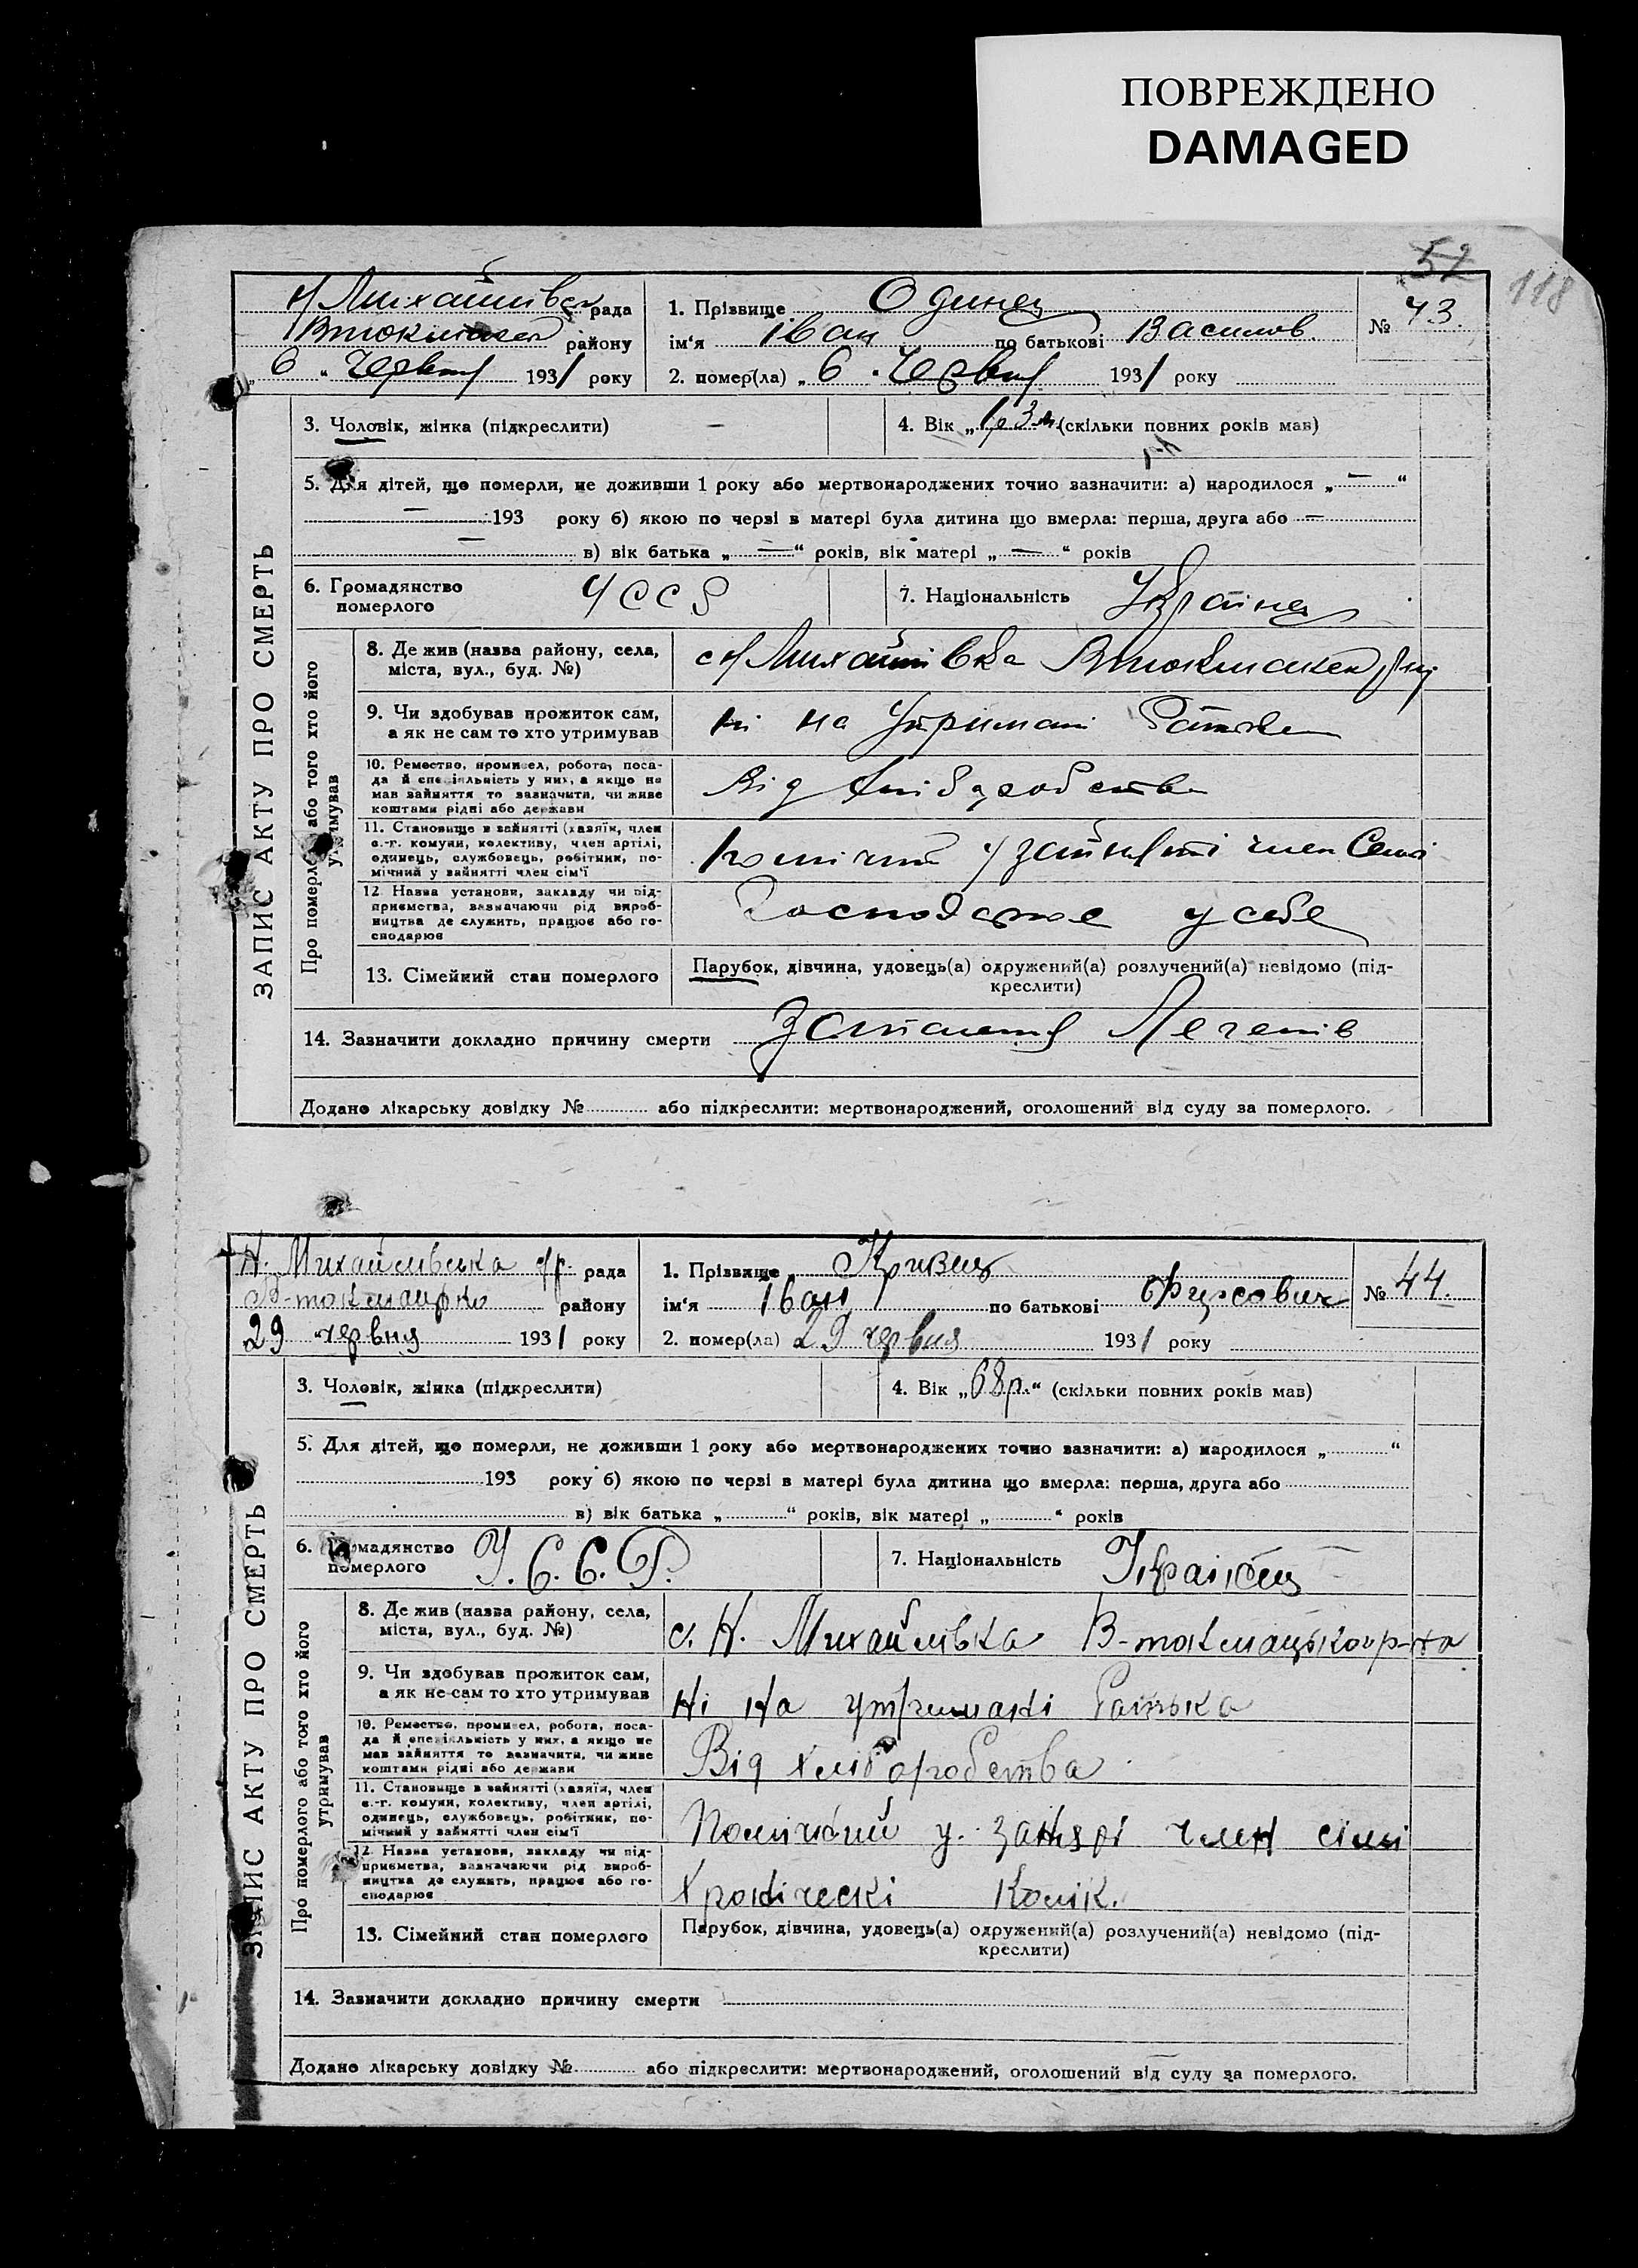 ПОВРЕЖДЕНО
DAMAGED
52
118
Н Михайлівсь рада
Втокмакск району
„ 6 “ Червня 1931 року
1. Прізвище Одинец
ім'я Іван по батькові Василов.
2. помер(ла) „ 6 “ Червня 1931 року
№ 43.
ЗАПИС АКТУ ПРО СМЕРТЬ
3. Чоловік, жінка (підкреслити) —
4. Вік „ 1р 3 м “ (скільки повних років мав)
5. Для дітей, що померли, не доживши 1 року або мертвонароджених точно зазначити: а) народилося „ — “
— 193 року б) якою по черзі в матері була дитина що вмерла: перша, друга або —
— в) вік батька „ — “ років, вік матері „ — “ років
6. Громадянство
померлого
УССР
7. Національність Українец
Про померлого або того хто його
утримував
8. Де жив (назва району, села,
міста, вул., буд. №)
с Н Михайлівка Втокмакск р-ну
9. Чи здобував прожиток сам,
а як не сам то хто утримував
ні на Утримані Батьк
10. Ремество, промисел, робота, поса-
да й спеціяльність у них, а якщо не
мав зайняття то зазначити, чи живе
коштами рідні або держави
Від хліборобства
11. Становище в зайнятті (хазяїн, член
с.-г. комуни, колективу, член артілі,
одинець, службовець, робітник, по-
мічний у зайнятті член сім'ї
Помічний у зайнятті член Семі
12 Назва установи, закладу чи під-
приємства, зазначаючи рід вироб-
ництва де служить, працює або го-
сподарює
Господарює у себе
13. Сімейний стан померлого
Парубок, дівчина, удовець(а) одружений(а) розлучений(а) невідомо (під-
креслити)
14. Зазначити докладно причину смерти Запаленія Легенів
Додано лікарську довідку № або підкреслити: мертвонароджений, оголошений від суду за померлого.
Н. Михайлівська с/р. рада
В-токмацько району
29 червня 1931 року
1. Прізвище Кривец
ім'я Іван по батькові
2. помер(ла) 29 червня 1931 року
№ 44.
ЗАПИС АКТУ ПРО СМЕРТЬ
3. Чоловік, жінка (підкреслити)
4. Вік „ 68р. “ (скільки повних років мав)
5. Для дітей, що померли, не доживши 1 року або мертвонароджених точно зазначити: а) народилося „ “
193 року б) якою по черзі в матері була дитина що вмерла: перша, друга або
в) вік батька „ “ років, вік матері „ “ років
6. Громадянство
померлого
У.С.С.Р.
7. Національність Українец
Про померлого або того хто його
утримував
8. Де жив (назва району, села,
міста, вул., буд. №)
с. Н. Михайлівка В-токмацького р-на
9. Чи здобував прожиток сам,
а як не сам то хто утримував
Ні На утримані Батька
10. Ремество, промисел, робота, поса-
да й спеціяльність у них, а якщо не
мав зайняття то зазначити, чи живе
коштами рідні або держави
Від хліборобства
11. Становище в зайнятті (хазяїн, член
с.-г. комуни, колективу, член артілі,
одинець, службовець, робітник, по-
мічний у зайнятті член сім'ї
Помічний у. член сімї
12. Назва установи, закладу чи під-
приємства, зазначаючи рід вироб-
ництва де служить, працює або го-
сподарює
Хроніческі Колік.
13. Сімейний стан померлого
Парубок, дівчина, удовець(а) одружений(а) розлучений(а) невідомо (під-
креслити)
14. Зазначити докладно причину смерти
Додано лікарську довідку № або підкреслити: мертвонароджений, оголошений від суду за померлого.